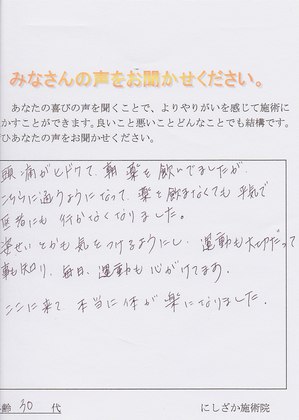 みなさんの声をお聞かせください。
あなたの喜びの声を聞くことで、よりやりがいを感じて施術に
かすことができます。良いこと悪いことどんなことでも結構です。
ひあなたの声をお聞かせください。
頭痛がヒドクて、朝 薬を飲んでましたが、
こちらに通うようになって、薬を飲まなくても平気で
医者にも 行かなくなりました。
姿せいとかも気をつけるようにし、運動も大切だって
事も知り、毎日、運動も心がけてます。
ここに来て 本当に体が楽になりました。
齢 30 代
にしざか施術院